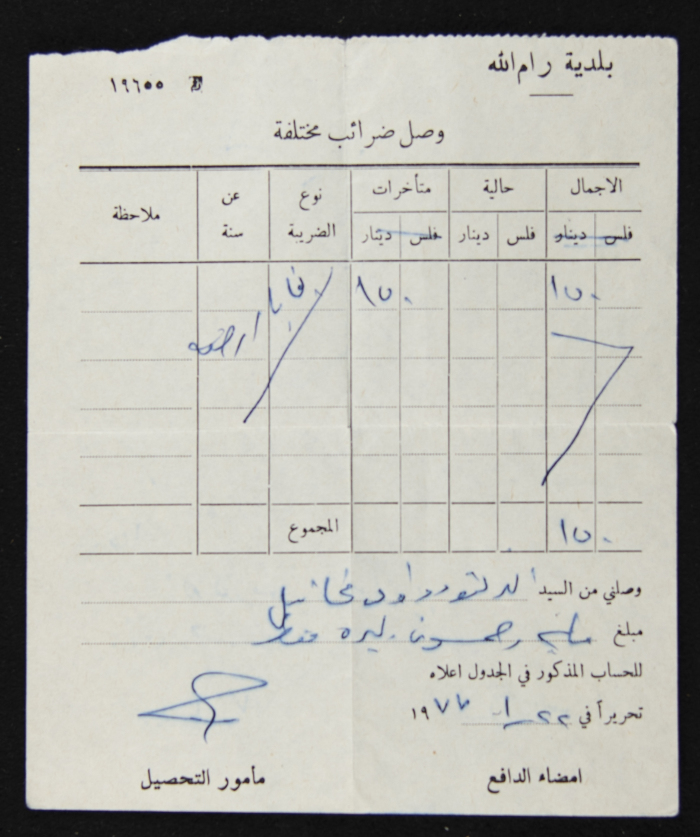 بلدية رام الله
١٩٦٥٥
وصل ضرائب مختلفة
الاجمال حالية متأخرات نوع الضريبة عن سنة ملاحظة
فلس دينار فلس دينار فلس دينار
١٥٠ ١٥٠
المجموع ١٥٠
وصلني من السيد الدكتور داود
مبلغ مايه وخمسون ليره فقط
للحساب المذكور في الجدول اعلاه
تحريراً في ٢٢/١ ١٩٧
امضاء الدافع مأمور التحصيل